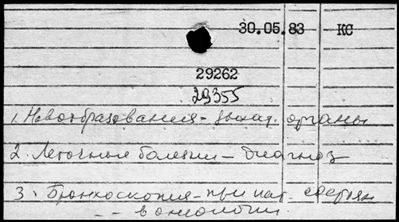 30.05.83 КС
29262
29355
1. Новообразования - дыхат. органы
2. Легочные болезни - диагноз
3. Бронхоскопия - при пат.
- " - в онкологии